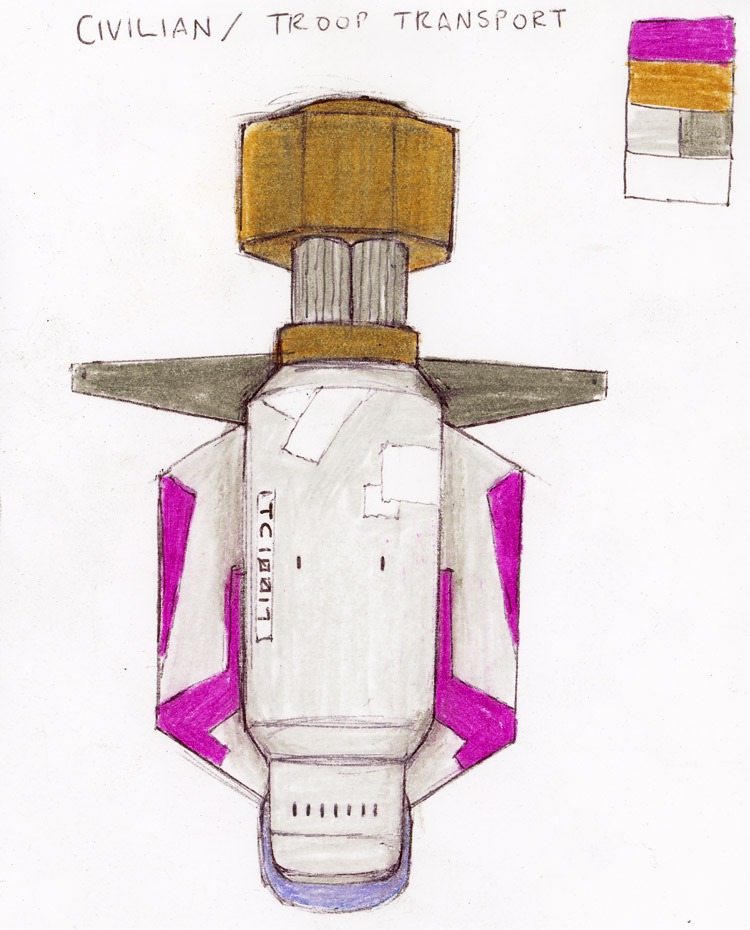 CIVILIAN/ TROOP TRANSPORT
TC10017